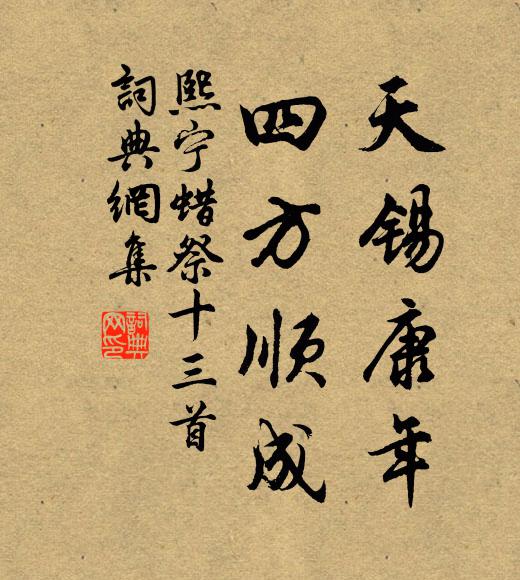 天锡康年
四方順成
熙宁蜡祭十三首
詞典網集
詞典
网印